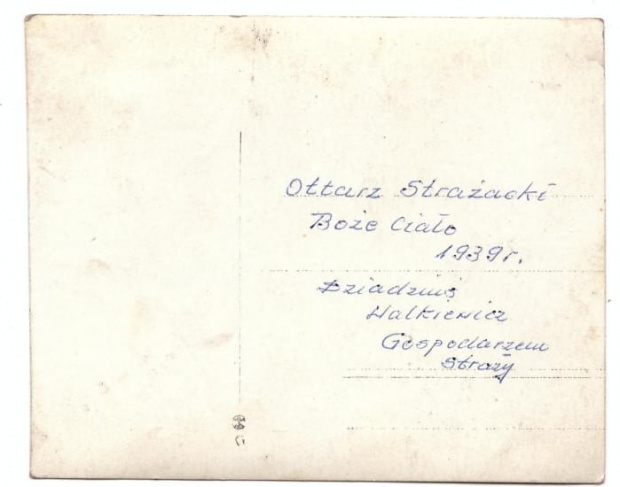 Ołtarz Strażacki
Boże Ciało
1939r.
Dziadziuś
Walkiewicz
Gospodarzem
Straży